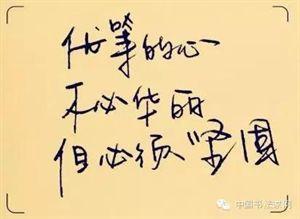 优等的心
不必华丽
但必须坚固
中国书法家网